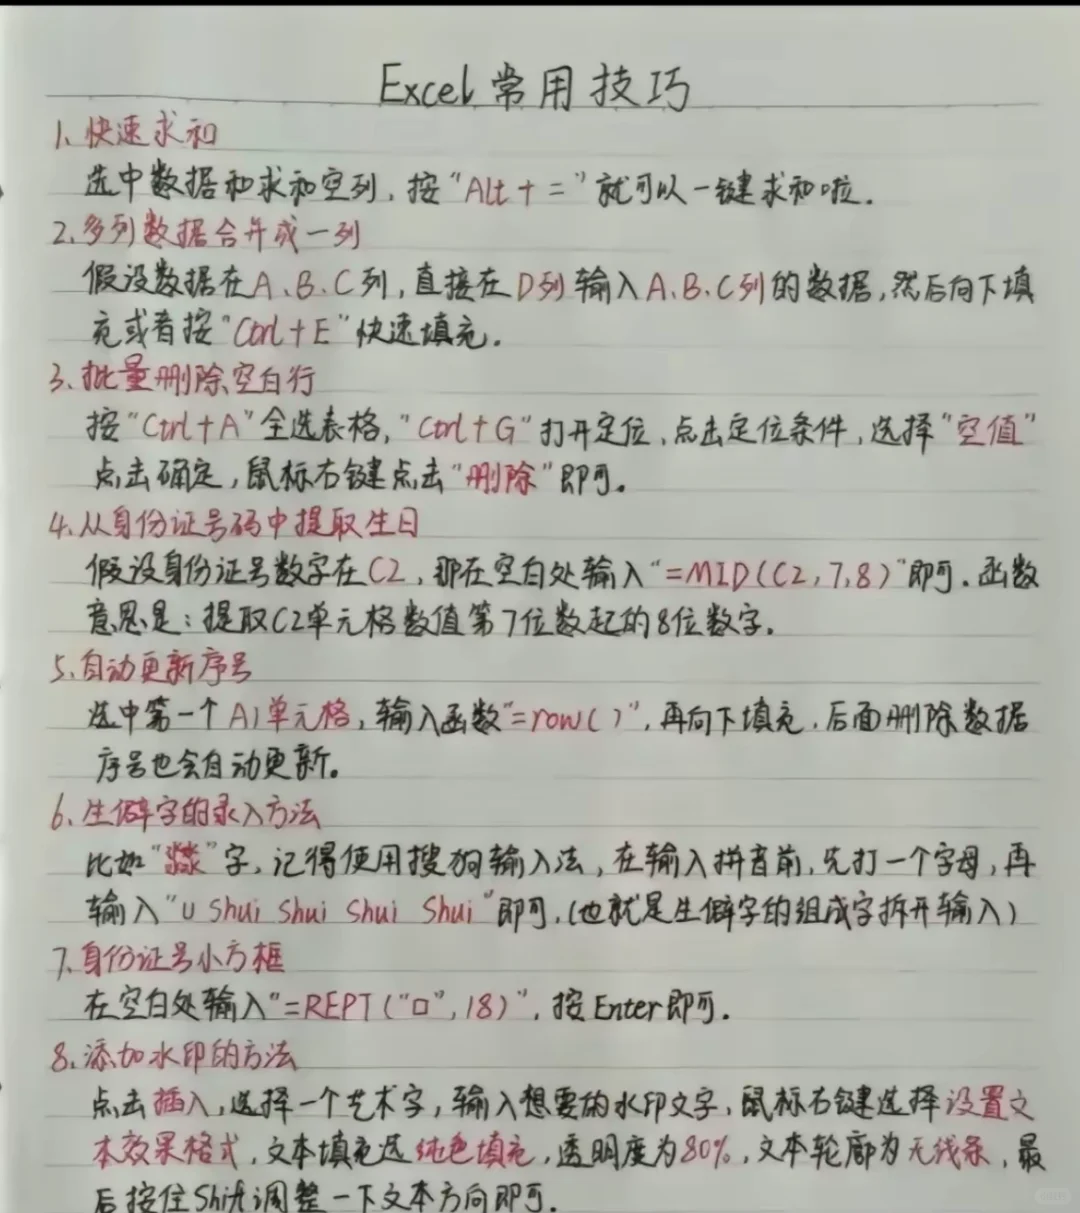 Excel常用技巧
1、快速求和
选中数据和求和空列，按“Alt+=”就可以一键求和啦.
2、多列数据合并成一列
假设数据在A、B、C列，直接在D列输入A、B、C列的数据，然后向下填
充或者按“Ctrl+E”快速填充.
3、批量删除空白行
按“Ctrl+A”全选表格，“Ctrl+G”打开定位、点击定位条件，选择“空值”
点击确定，鼠标右键点击“删除”即可。
4、从身份证号码中提取生日
假设身份证号数字在C2，那在空白处输入“=MID(C2,7,8)”即可.函数
意思是：提取C2单元格数值第7位数起的8位数字.
5、自动更新序号
选中第一个A1单元格，输入函数“=row()”，再向下填充.后面删除数据
序号也会自动更新。
6、生僻字的录入方法
比如“㵘”字，记得使用搜狗输入法，在输入拼音前，先打一个字母，再
输入“U Shui Shui Shui Shui”即可.(也就是生僻字的组成字拆开输入)
7、身份证号小方框
在空白处输入“=REPT(“口”,18)”，按Enter即可.
8、添加水印的方法
点击插入，选择一个艺术字，输入想要的水印文字，鼠标右键选择设置文
本效果格式，文本填充选纯色填充，透明度为80%，文本轮廓为无线条，最
后按住Shift调整一下文本方向即可.